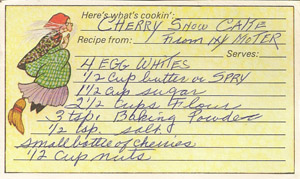 Here's what's cookin': CHERRY SNOW CAKE
Recipe from: From My MOTER
Serves:
4 EGG WHITES
1/2 Cup butter or SPRY
1 1/2 Cup sugar
2 1/2 Cups Flour
3 tsp. Baking Powder
1/2 tsp. salt
small bottle of cherries
1/2 Cup nuts